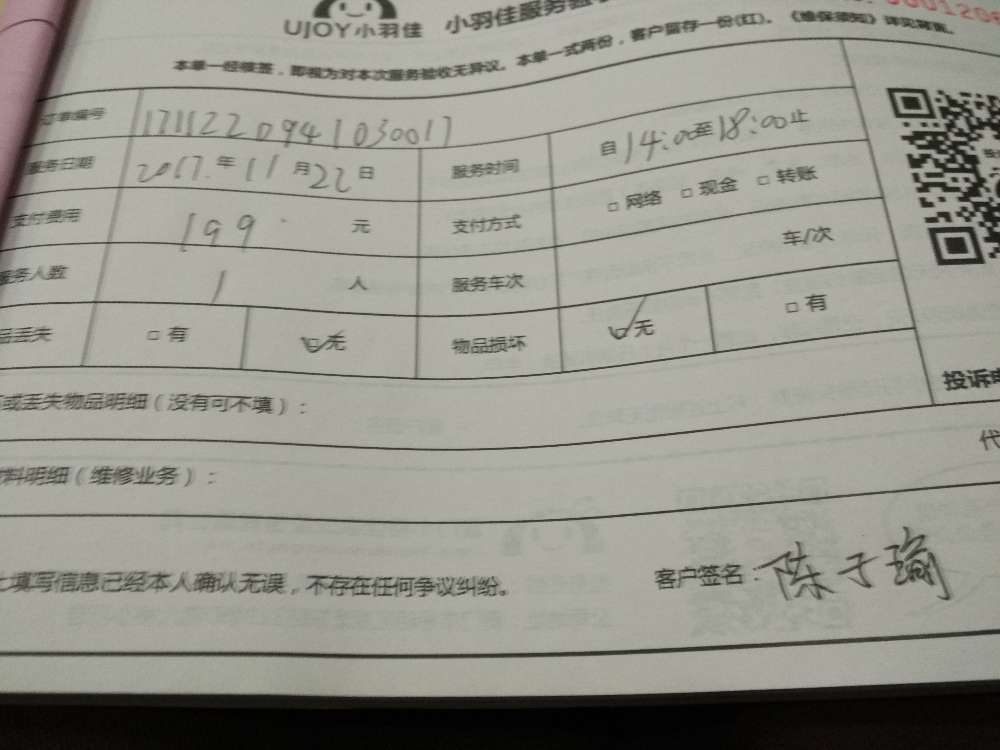 UJOY小羽佳 小羽佳服务
本单一经核签，即视为对本次服务验收无异议。本单一式两份，客户留存一份(红)。《维保须知》详见背面。
订单编号 1711220941030017
服务日期 2017年11月22日 服务时间 自14:00至18:00止
支付费用 199元 支付方式 □ 网络 □ 现金 □ 转账
服务人数 1人 服务车次 车/次
品丢失 □ 有 ☑无 物品损坏 ☑无 □ 有
或丢失物品明细（没有可不填）：
投诉
料明细（维修业务）：
代
上填写信息已经本人确认无误，不存在任何争议纠纷。 客户签名：陈于瑜